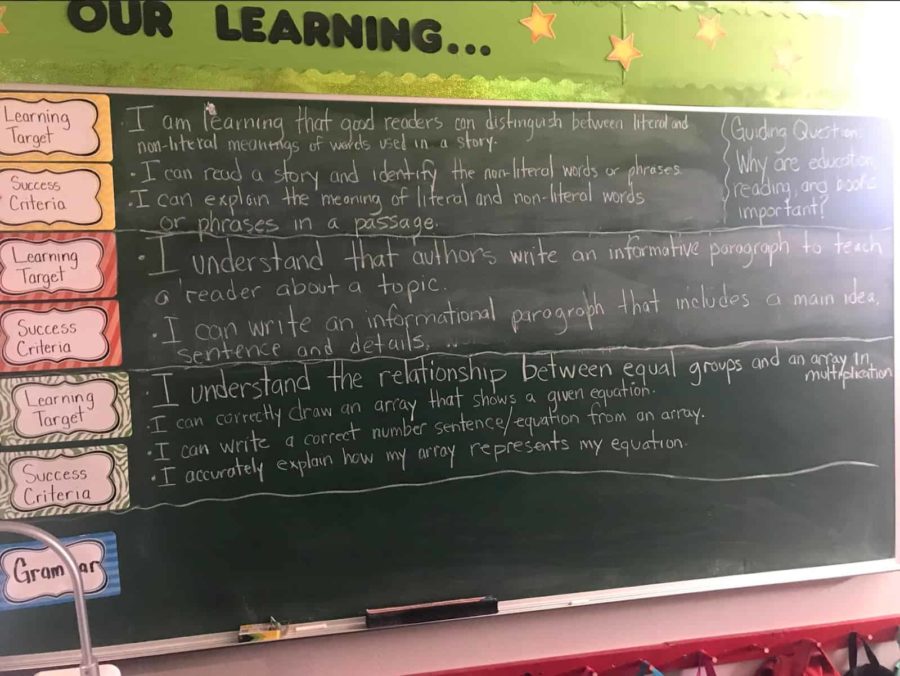 OUR LEARNING...
Learning
Target
I am learning that good readers can distinguish between literal and
non-literal meanings of words used in a story.
Success
Criteria
• I can read a story and identify the non-literal words or phrases
• I can explain the meaning of literal and non-literal words
or phrases in a passage.
Guiding Question
Why are education,
reading, and books
important?
Learning
Target
• I understand that authors write an informative paragraph to teach
a reader about a topic.
Success
Criteria
• I can write an informational paragraph that includes a main idea,
sentence and details.
Learning
Target
• I understand the relationship between equal groups and an array in
multiplication
Success
Criteria
• I can correctly draw an array that shows a given equation.
• I can write a correct number sentence/equation from an array.
• I accurately explain how my array represents my equation.
Grammar